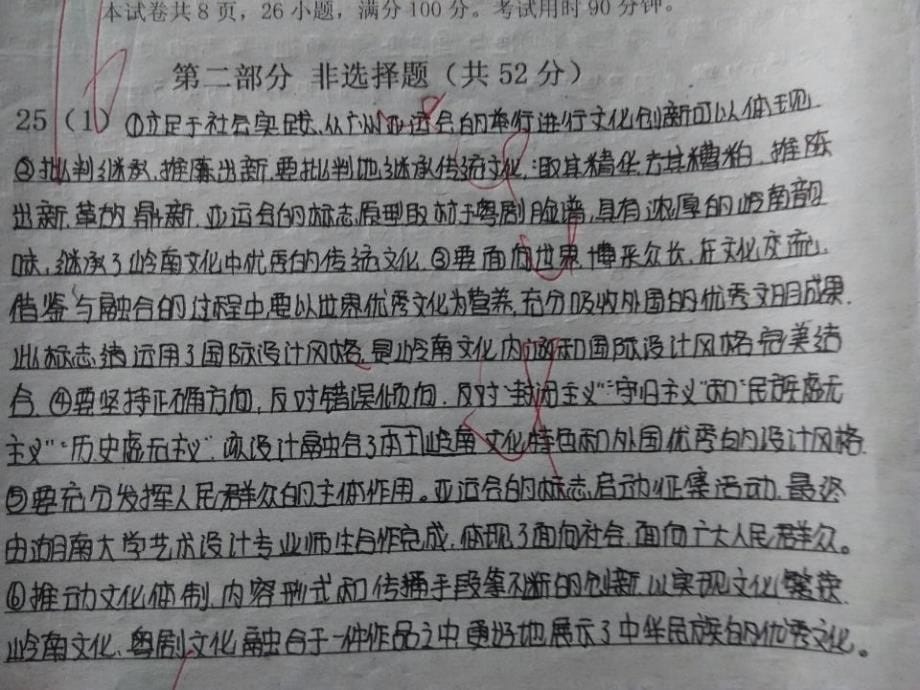 本试卷共8页，26小题，满分100分。考试用时90分钟。
第二部分 非选择题（共52分）
25（1）①立足于社会实践、从广州亚运会的举行进行文化创新可以体现
②批判继承，推陈出新，要批判地继承传统文化，取其精华，去其糟粕，推陈
出新，革故鼎新，亚运会的标志原型取材于粤剧脸谱，具有浓厚的岭南韵
味，继承了岭南文化中优秀的传统文化，③要面向世界，博采众长，在文化交流，
借鉴与融合的过程中，要以世界优秀文化为营养，充分吸收外国的优秀文明成果，
此标志运用了国际设计风格，是岭南文化内涵和国际设计风格完美结
合，④要坚持正确方向，反对错误倾向，反对"封闭主义""守旧主义"和"民族虚无
主义""历史虚无主义"，该设计融合了本土岭南文化特色和外国优秀的设计风格
⑤要充分发挥人民群众的主体作用。亚运会的标志，启动征集活动，最终
由湖南大学艺术设计专业师生合作完成，体现了面向社会，面向广大人民群众。
⑥推动文化体制，内容形式和传播手段等不断的创新，以实现文化繁荣
岭南文化、粤剧文化融合于一种作品之中，更好地展示了中华民族的优秀文化。